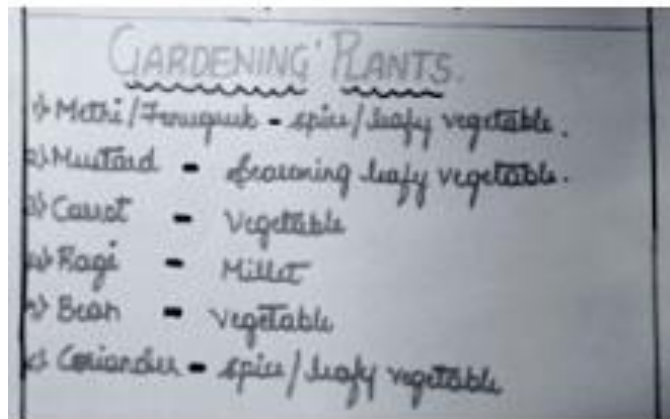 GARDENING PLANTS.
1) Methi/Fenugreek - spice/leafy vegetable.
2) Mustard - Seasoning leafy vegetable.
3) Carrot - Vegetable
4) Ragi - Millet
5) Bean - Vegetable
6) Coriander - spice/leafy vegetable